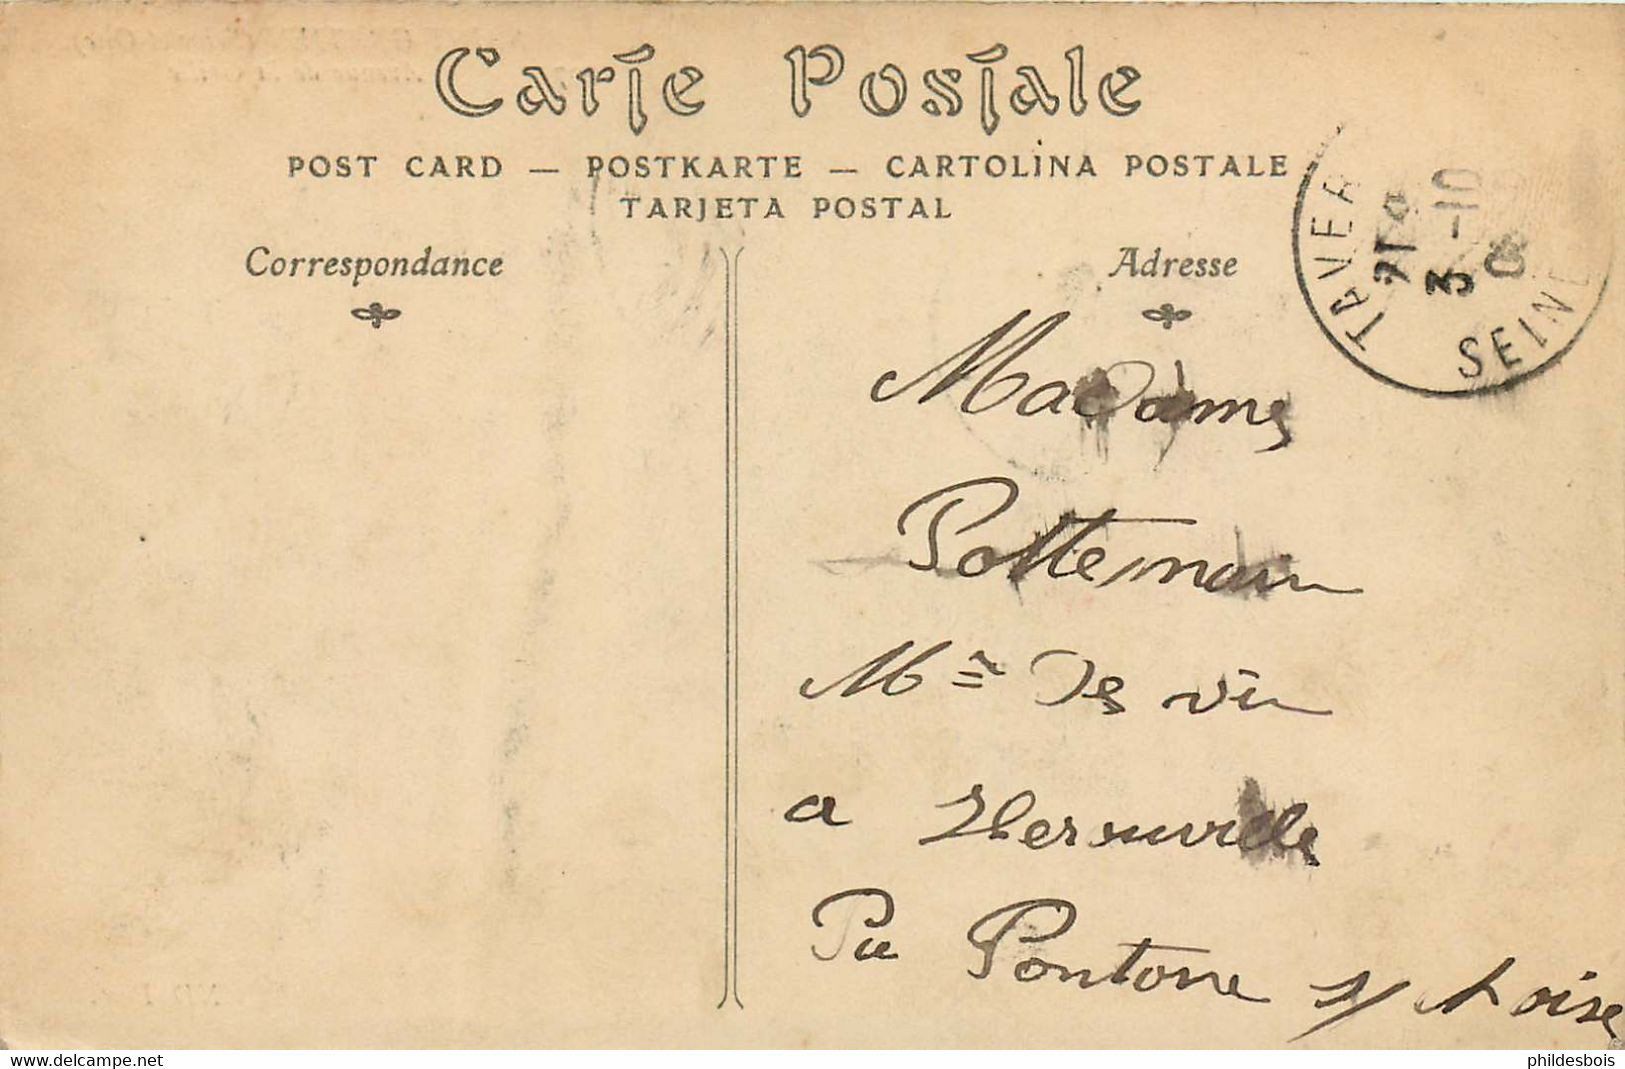 Carte Postale
POST CARD — POSTKARTE — CARTOLINA POSTALE
TARJETA POSTAL
Correspondance
Adresse
TAVER
3 -10
SEINE
Madame
Pottemain
Mde de vin
a Herouville
Par Pontoise s/ Loise
phildesbois